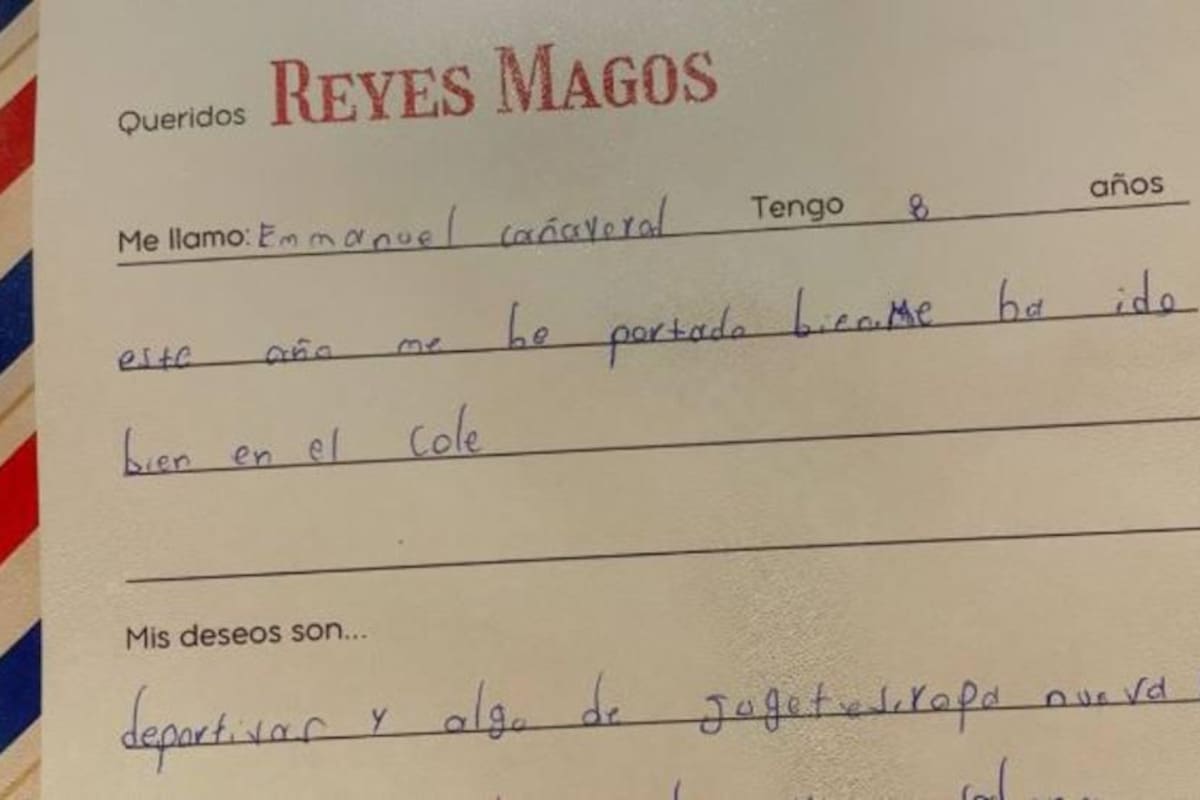 Queridos REYES MAGOS
Me llamo: Emmanuel cañaveral Tengo 8 años
este año me he portado bien.Me ha ido
bien en el cole
Mis deseos son...
deportivas y algo de jugetes.ropa nueva